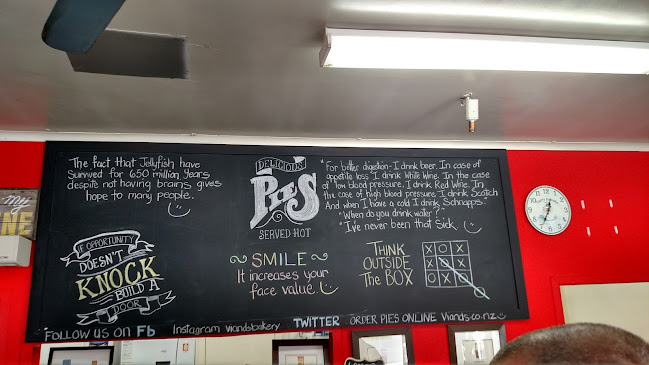 The fact that Jellyfish have
Survived for 650 million Years
despite not having brains gives
hope to many people.
DELICIOUS
PIES
SERVED HOT
"For better digestion-I drink beer. In case of
appetite loss I drink White Wine. In the case
of low blood pressure, I drink Red Wine. In
the case of high blood pressure I drink Scotch
And when I have a cold I drink Schnapps."
"When do you drink water?"
"I've never been that Sick.
IF OPPORTUNITY
DOESN'T
KNOCK
BUILD A
DOOR
~SMILE~
It increases your
face value.
THINK
OUTSIDE
The BOX
X O X
X O X
FOLLOW US ON Fb
Instagram viandsbakery
TWITTER
ORDER PIES ONLINE Viands.co.nz
MY